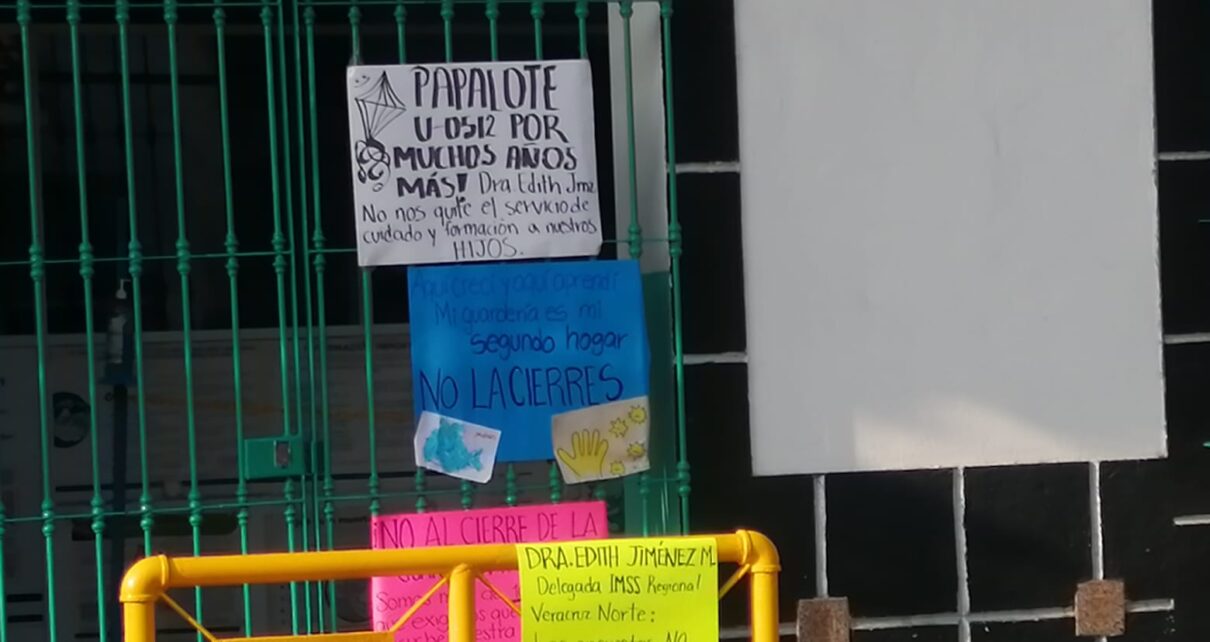 PAPALOTE
U-0512 POR
MUCHOS AÑOS
MÁS! Dra. Edith Jmz
No nos quite el servicio de
cuidado y formación a nuestros
HIJOS.
Aquí crecí y aquí aprendí
Mi guardería es mi
segundo hogar
NO LA CIERRES
¡NO AL CIERRE DE LA
Somos
exig que
DRA. EDITH JIMÉNEZ M.
Delegada IMSS Regional
Veracruz Norte:
NO